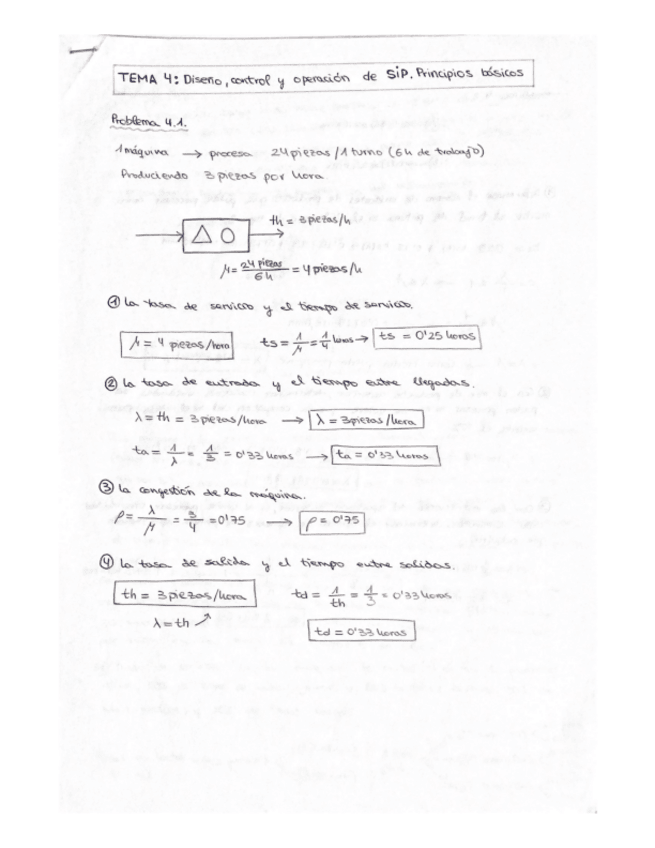 TEMA 4: Diseño, control y operación de SiP. Principios básicos
Problema 4.1.
1 máquina → procesa 24 piezas / 1 turno (6h de trabajo)
Produciendo 3 piezas por hora
th = 3 piezas/h
μ = 24 piezas / 6 h = 4 piezas/h
① La tasa de servicio y el tiempo de servicio.
μ = 4 piezas/hora ts = 1/μ = 1/4 horas → ts = 0'25 horas
② La tasa de entrada y el tiempo entre llegadas.
λ = th = 3 piezas/hora → λ = 3 piezas/hora
ta = 1/λ = 1/3 = 0'33 horas → ta = 0'33 horas
③ La congestión de la máquina.
ρ = λ/μ = 3/4 = 0'75 → ρ = 0'75
④ La tasa de salida y el tiempo entre salidas.
th = 3 piezas/hora td = 1/th = 1/3 = 0'33 horas
λ = th ↗
td = 0'33 horas